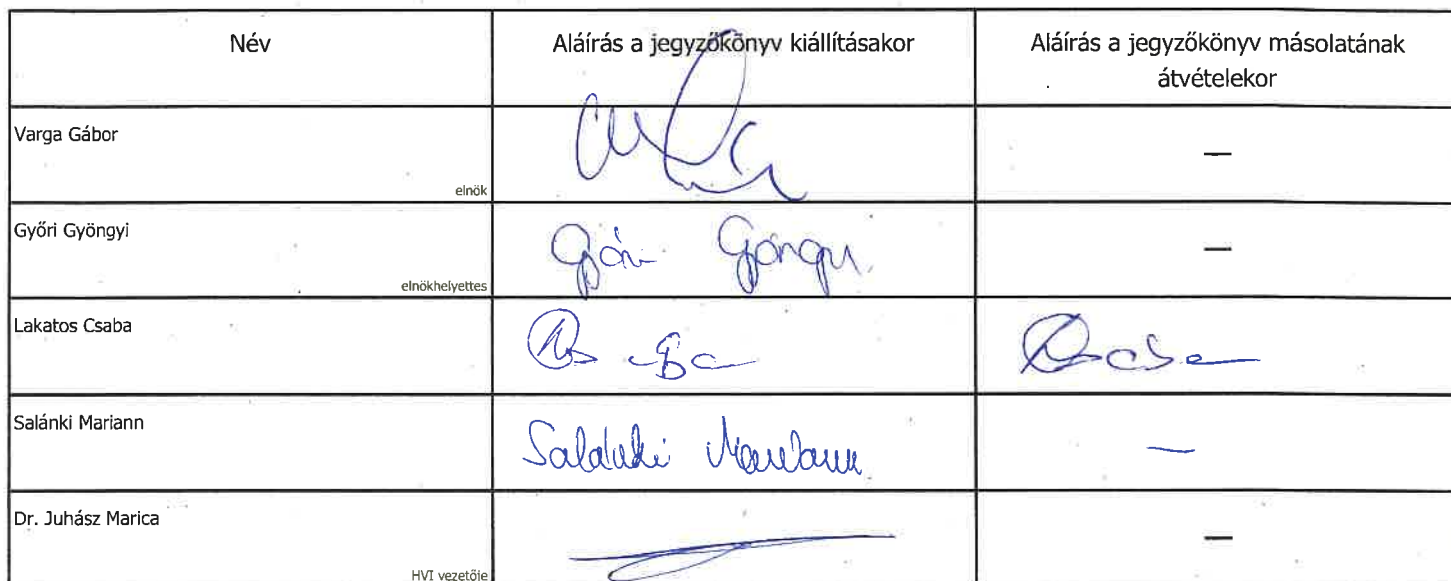 Név
Aláírás a jegyzőkönyv kiállításakor
Aláírás a jegyzőkönyv másolatának
átvételekor
Varga Gábor
elnök
—
Győri Gyöngyi
elnökhelyettes
Győri Gyöngyi
—
Lakatos Csaba
Salánki Mariann
Salánki Mariann
—
Dr. Juhász Marica
HVI vezetője
—